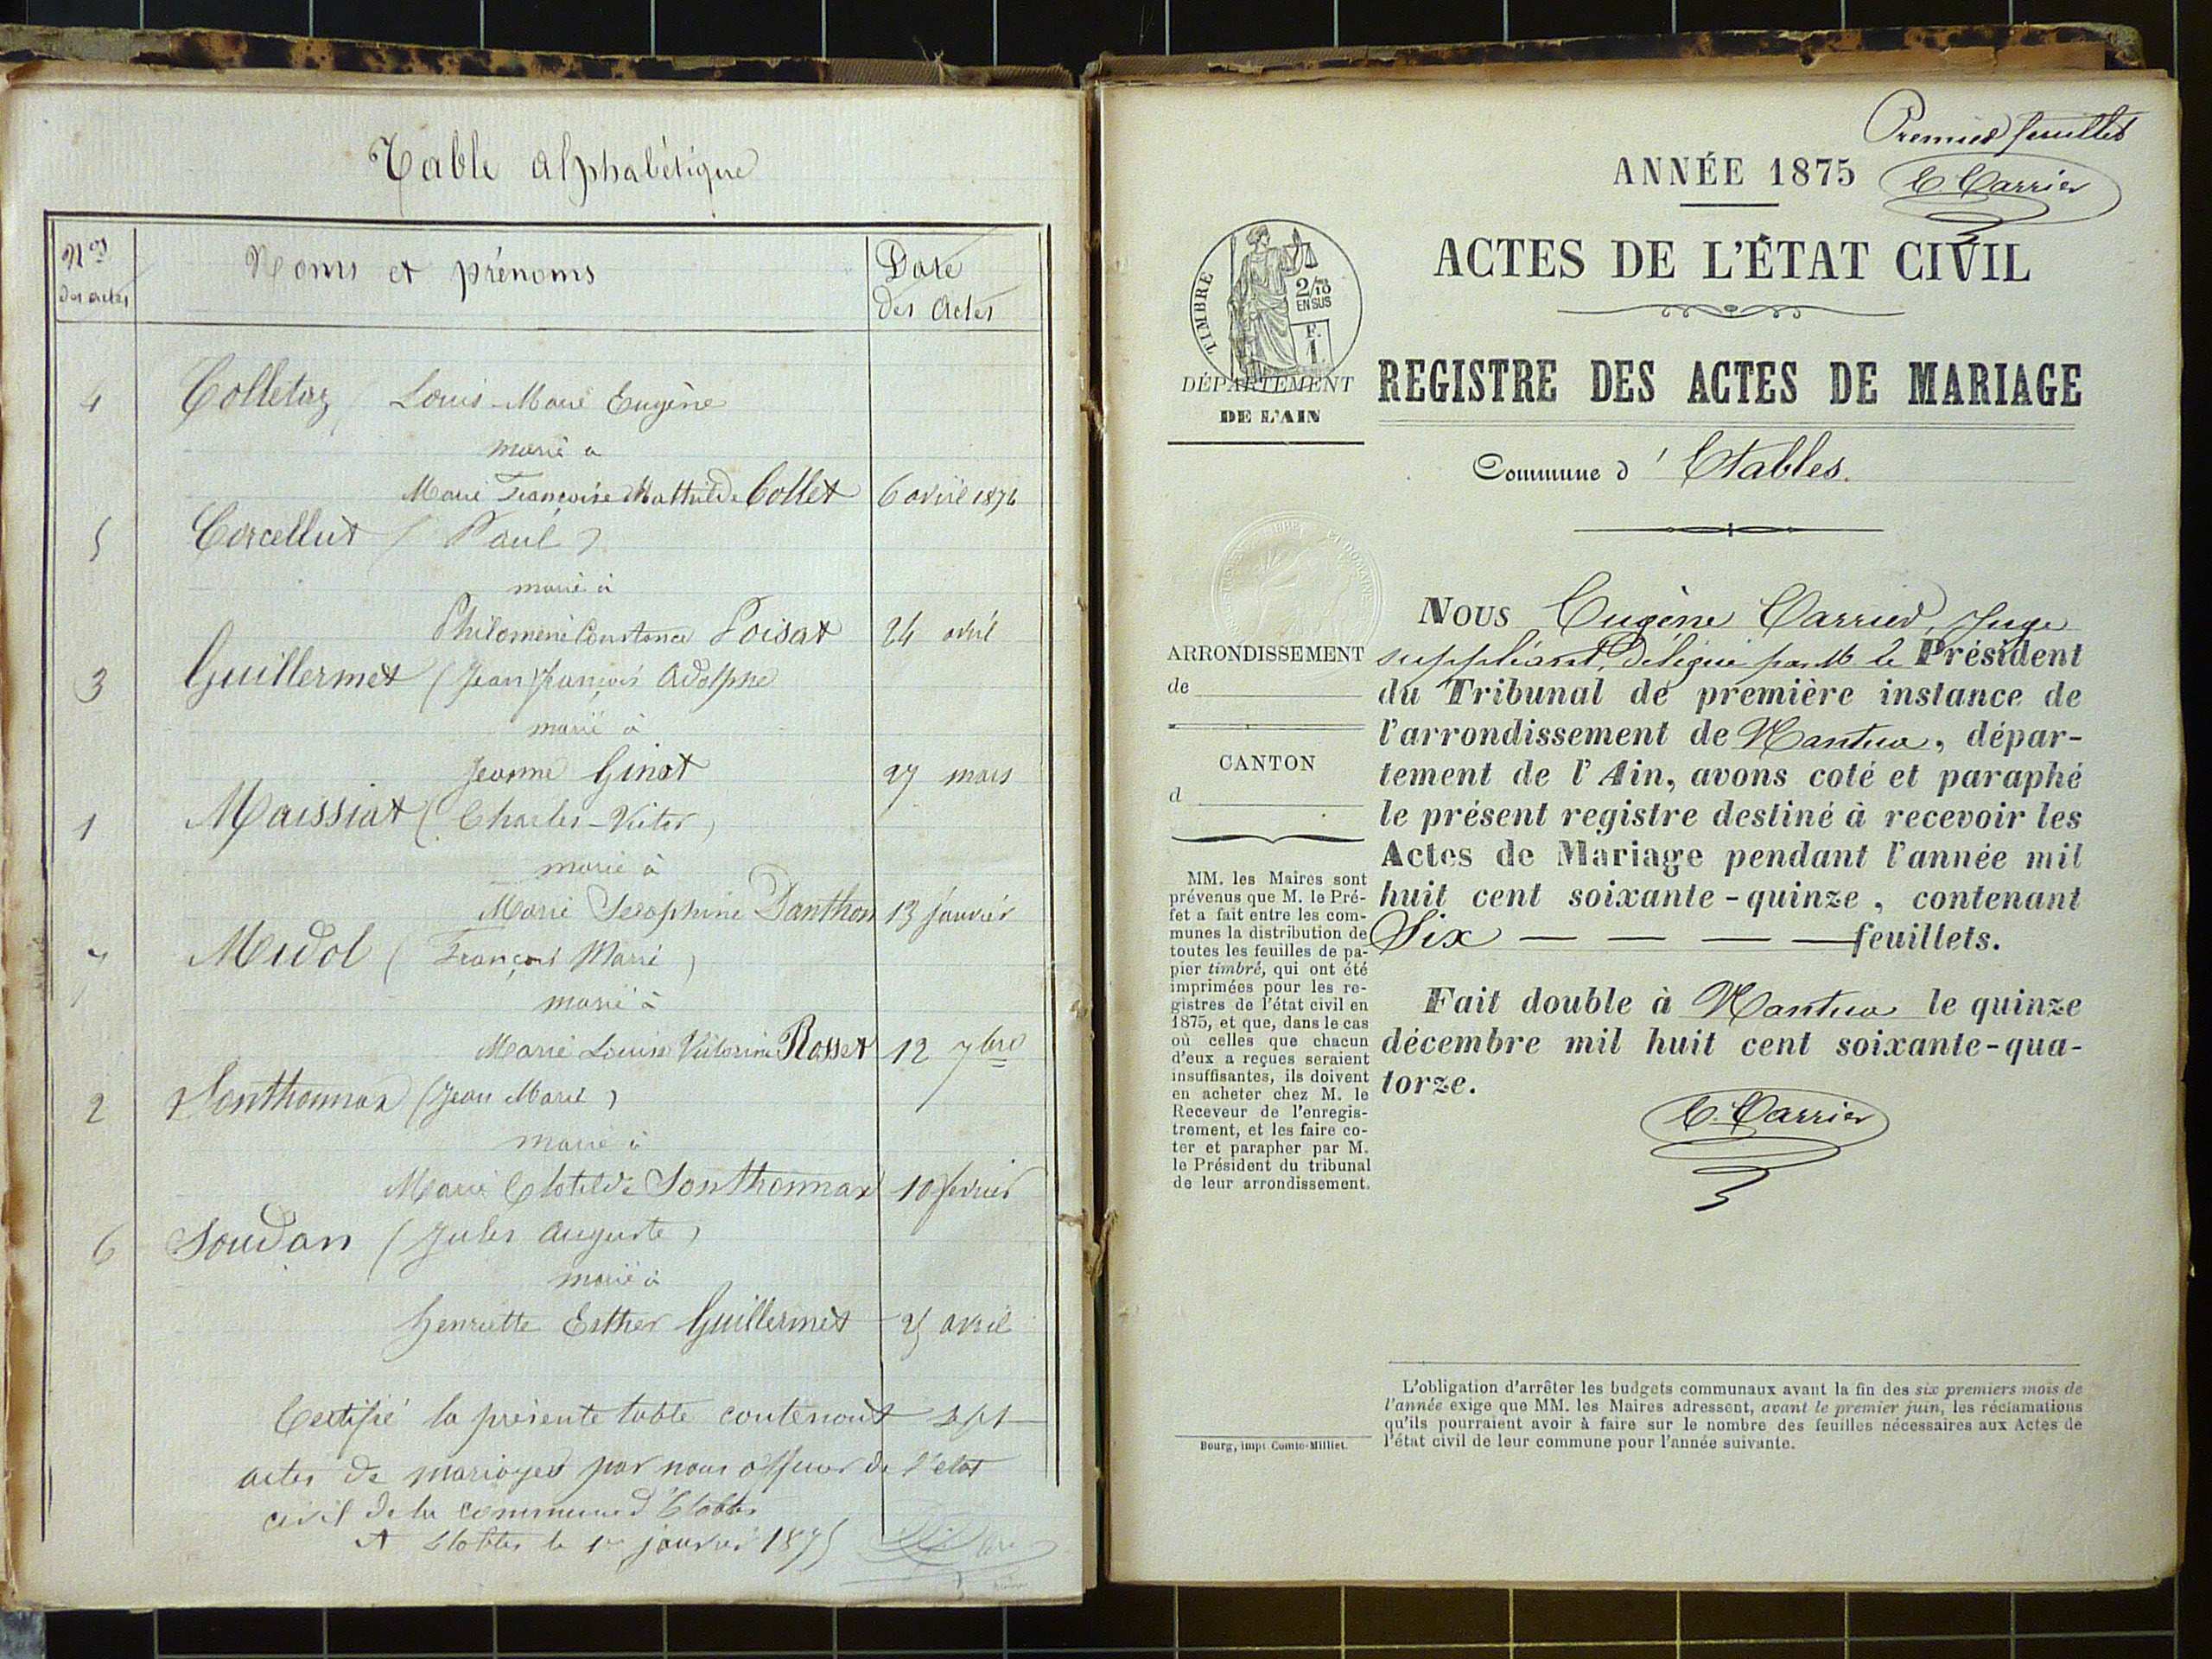 Table alphabétique
Nos
des actes
Noms et prénoms
Date
des Actes
4 Colletaz ( Louis-Marie Eugène
marié à
Marie Françoise Mathilde Collet 6 avril 1874
5 Corcellut ( Paul )
marié à
Philomène Constance Poisat 24 avril
3 Guillermet ( Jean François Adolphe
marié à
Jeanne Ginot 27 mars
1 Maissiat ( Charles-Victor )
marié à
Marie Séraphine Danthon 13 janvier
7 Midol ( François Marie )
marié à
Marie Louise Victorine Rosset 12 7bre
2 Sonthonnax ( Jean Marie )
marié à
Marie Clotilde Sonthonnax 10 février
6 Soudan ( Jules Auguste )
marié à
Henriette Esther Guillermet 25 avril
Certifié la présente table contenant sept
actes de mariages par nous officier de l'état
civil de la commune d'Etables
A Etables le 1er janvier 1875
Premier feuillet
ANNÉE 1875
C Carrier
ACTES DE L'ÉTAT CIVIL
TIMBRE
2/10
EN SUS
F.
1
DÉPARTEMENT
DE L'AIN
REGISTRE DES ACTES DE MARIAGE
Commune d' Etables.
ARRONDISSEMENT
de
CANTON
d
MM. les Maires sont
prévenus que M. le Pré-
fet a fait entre les com-
munes la distribution de
toutes les feuilles de pa-
pier timbré, qui ont été
imprimées pour les re-
gistres de l'état civil en
1875, et que, dans le cas
où celles que chacun
d'eux a reçues seraient
insuffisantes, ils doivent
en acheter chez M. le
Receveur de l'enregis-
trement, et les faire co-
ter et parapher par M.
le Président du tribunal
de leur arrondissement.
Nous Eugène Carrier, Juge
suppléant, Délégué par M. le Président
du Tribunal de première instance de
l'arrondissement de Nantua, dépar-
tement de l'Ain, avons coté et paraphé
le présent registre destiné à recevoir les
Actes de Mariage pendant l'année mil
huit cent soixante-quinze, contenant
Six — — — — feuillets.
Fait double à Nantua le quinze
décembre mil huit cent soixante-qua-
torze.
E. Carrier
L'obligation d'arrêter les budgets communaux avant la fin des six premiers mois de
l'année exige que MM. les Maires adressent, avant le premier juin, les réclamations
qu'ils pourraient avoir à faire sur le nombre des feuilles nécessaires aux Actes de
l'état civil de leur commune pour l'année suivante.
Bourg, impr Comte-Milliet.